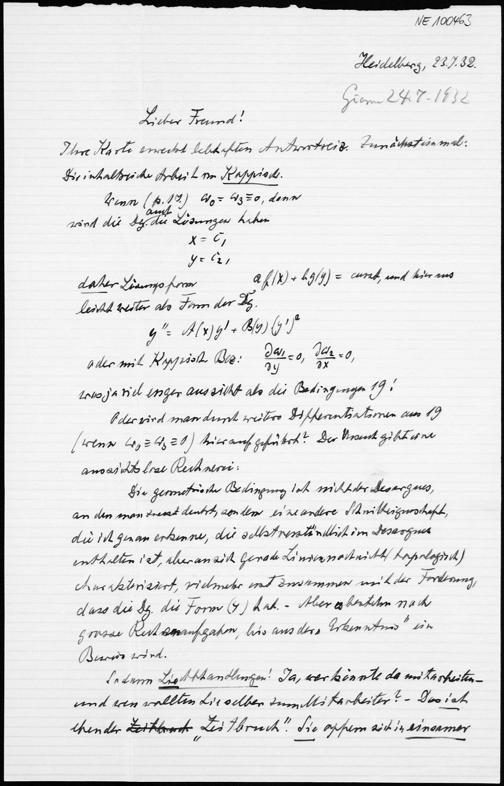 NE 100463
Heidelberg, 23.7.32.
24.7.1932
Lieber Freund!
Ihre Karte erweckt lebhaften Antwortreiz. Zunächst einmal:
Die inhaltreiche Arbeit von Kappisch.
Wenn (p. 17.) ω₀ = ω₃ ≡ 0, dann
wird die Dg. auch die Lösungen haben
x = C₁
y = C₂,
daher Lösungsform a f(x) + b g(y) = const, und hieraus
leicht weiter als Form der Dg.
y'' = A(x) y' + B(y) (y')²
oder mit Kappischs Bez: ∂ω₁/∂y = 0, ∂ω₂/∂x = 0,
was ja viel enger aussieht als die Bedingungen 19!
Oder wird man durch weitere Differentiationen aus 19
(wenn ω₀ ≡ ω₃ ≡ 0) hierauf geführt? Der Versuch gibt eine
aussichtslose Rechnerei:
Die geometrische Bedingung ist nicht der Desargues,
an den man zuerst denkt, sondern eine andere Schnitteigenschaft,
die ich genau erkenne, die selbstverständlich im Desargues
enthalten ist, aber an sich gerade Linien noch nicht (topologisch)
charakterisiert, vielmehr erst zusammen mit der Forderung,
dass die Dg. die Form (4) hat. – Aber es bestehen noch
grosse Rechenaufgaben, bis aus der "Erkenntnis" ein
Beweis wird.
Sodann Lie Abhandlungen! Ja, wer könnte da mitarbeiten –
und wen wollten Sie selber zum Mitarbeiter? – Das ist
eben der Zeitbruch "Zeitbruch". Sie opfern sich in einsamer